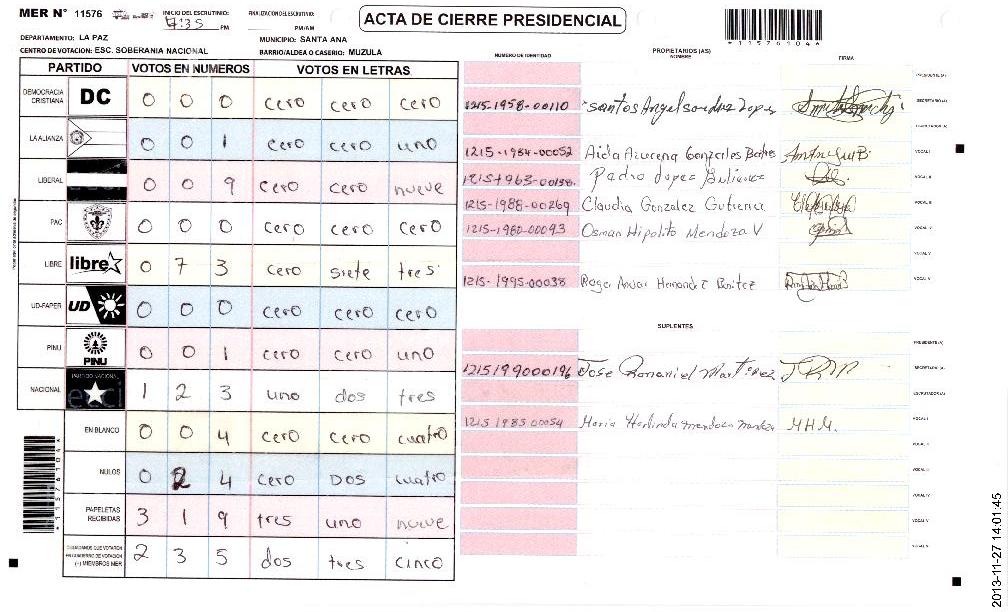 MER N° 11576 INICIO DEL ESCRUTINIO: 7:35 PM FINALIZACION DEL ESCRUTINIO: PM/AM
ACTA DE CIERRE PRESIDENCIAL
*11576104*
DEPARTAMENTO: LA PAZ MUNICIPIO: SANTA ANA
CENTRO DE VOTACION: ESC. SOBERANIA NACIONAL BARRIO/ALDEA O CASERIO: MUZULA
PARTIDO VOTOS EN NUMEROS VOTOS EN LETRAS
DEMOCRACIA CRISTIANA DC 0 0 0 cero cero cero
LA ALIANZA 0 0 1 cero cero uno
LIBERAL 0 0 9 cero cero nueve
PAC 0 0 0 cero cero cero
LIBRE libre 0 7 3 cero siete tres
UD-FAPER UD 0 0 0 cero cero cero
PINU PINU 0 0 1 cero cero uno
NACIONAL PARTIDO NACIONAL 1 2 3 uno dos tres
EN BLANCO 0 0 4 cero cero cuatro
NULOS 0 2 4 cero DOS cuatro
PAPELETAS RECIBIDAS 3 1 9 tres uno nueve
CIUDADANOS QUE VOTARON EN CUADERNO DE VOTACION (+) MIEMBROS MER 2 3 5 dos tres cinco
NUMERO DE IDENTIDAD PROPIETARIOS (AS) NOMBRE FIRMA
PRESIDENTE (A)
1215-1958-00110 santos Angel Lopez SECRETARIO (A)
ESCRUTADOR (A)
1215-1984-00052 Aida Azucena Gonzales VOCAL I
Pedro Lopez Gutierrez VOCAL II
1215-1988-00269 Claudia Gonzalez Gutierrez VOCAL III
1215-1980-00093 Osman Hipolito Mendoza V VOCAL IV
VOCAL V
1215-1995-00038 Roger Hernandez Benitez VOCAL V
SUPLENTES
PRESIDENTE (A)
1215199000196 Jose Martinez JRM SECRETARIO (A)
ESCRUTADOR (A)
1215 1983 00054 Maria Herlinda mendoza M.H.M. VOCAL I
VOCAL II
VOCAL III
VOCAL IV
VOCAL V
*11576104*
2013-11-27 14:01:45